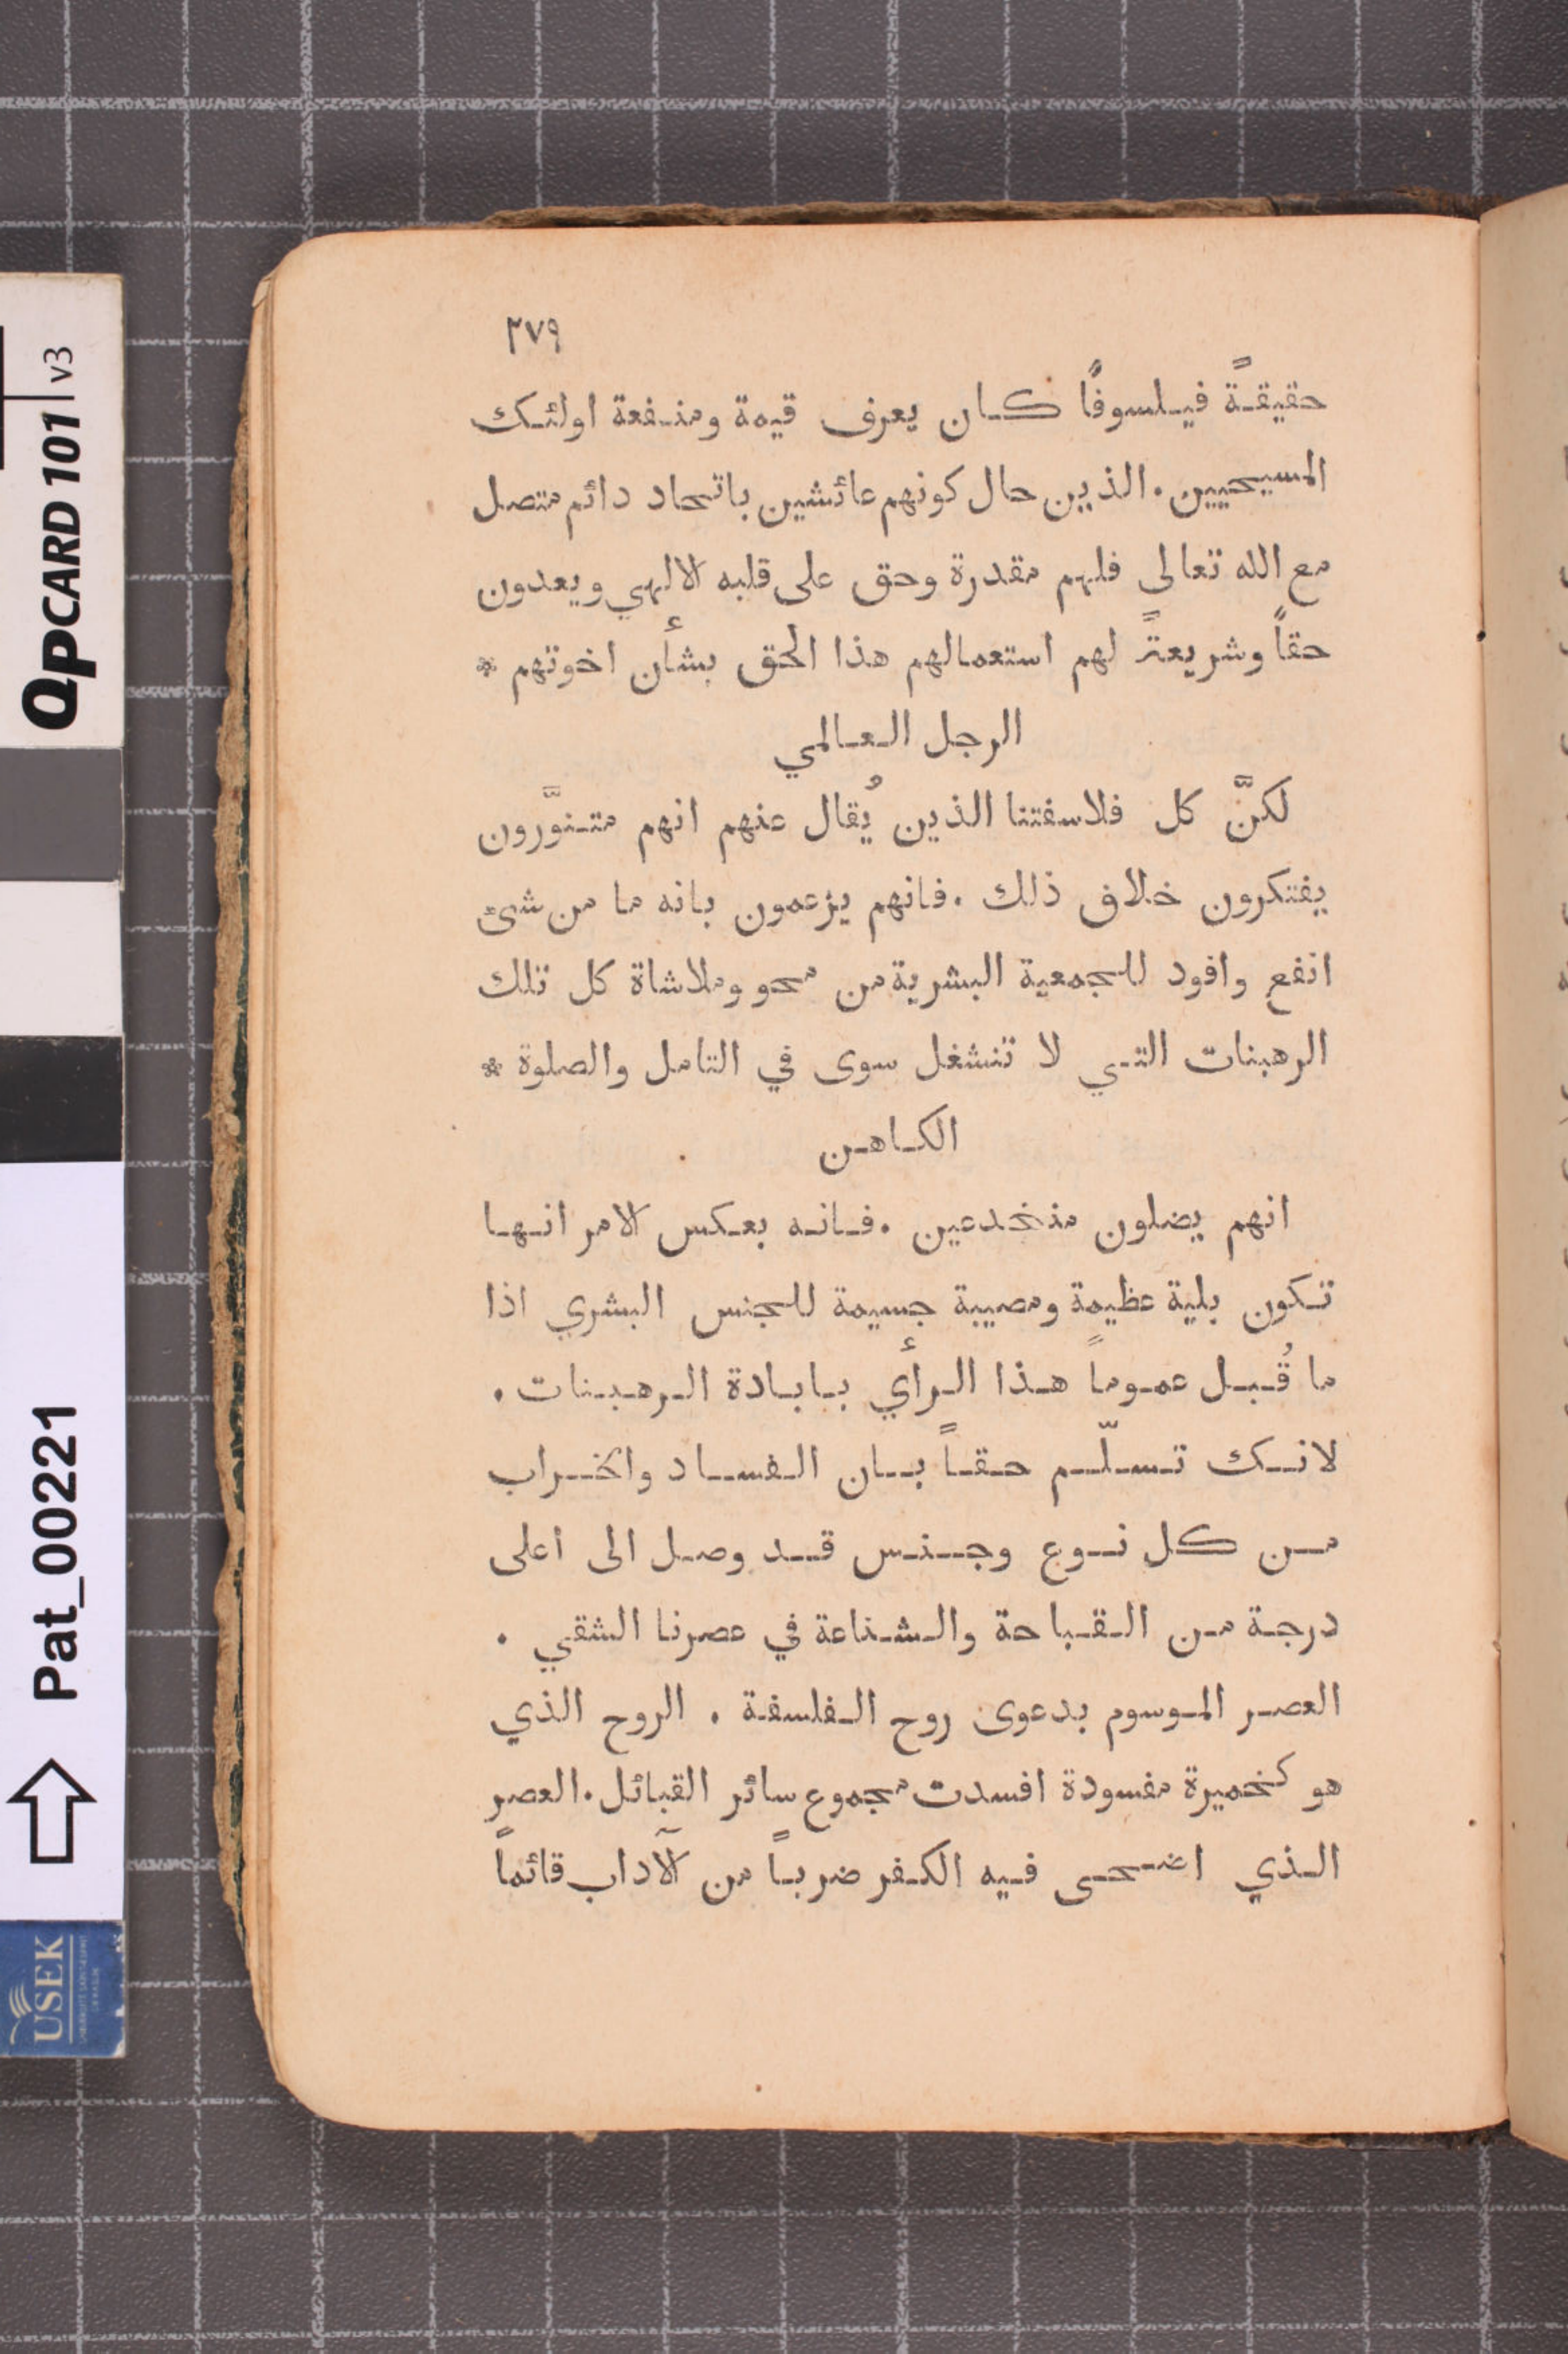 ٢٧٩
حقيقةً فيلسوفًا كان يعرف قيمة ومنفعة اولئك
المسيحيين. الذين حال كونهم عائشين باتحاد دائم متصل
مع الله تعالى فلهم مقدرة وحق على قلبه الالهي ويعدون
حقاً وشريعةً لهم استعمالهم هذا الحق بشأن اخوتهم *
الرجل العالمي
لكنَّ كل فلاسفتنا الذين يُقال عنهم انهم متنوَّرون
يفتكرون خلاف ذلك. فانهم يزعمون بانه ما من شئ
انفع وافود للجمعية البشرية من محو وملاشاة كل تلك
الرهبنات التي لا تنشغل سوى في التامل والصلوة *
الكاهن
انهم يضلون منخدعين. فانه بعكس الامر انها
تكون بلية عظيمة ومصيبة جسيمة للجنس البشري اذا
ما قُبل عموماً هذا الرأي بابادة الرهبنات.
لانك تسلّم حقاً بان الفساد والخراب
من كل نوع وجنس قد وصل الى اعلى
درجة من القباحة والشناعة في عصرنا الشقي.
العصر الموسوم بدعوى روح الفلسفة. الروح الذي
هو كخميرة مفسودة افسدت مجموع سائر القبائل. العصر
الذي اضحى فيه الكفر ضرباً من الآداب قائماً
QPCARD 101 v3
Pat_00221
USEK